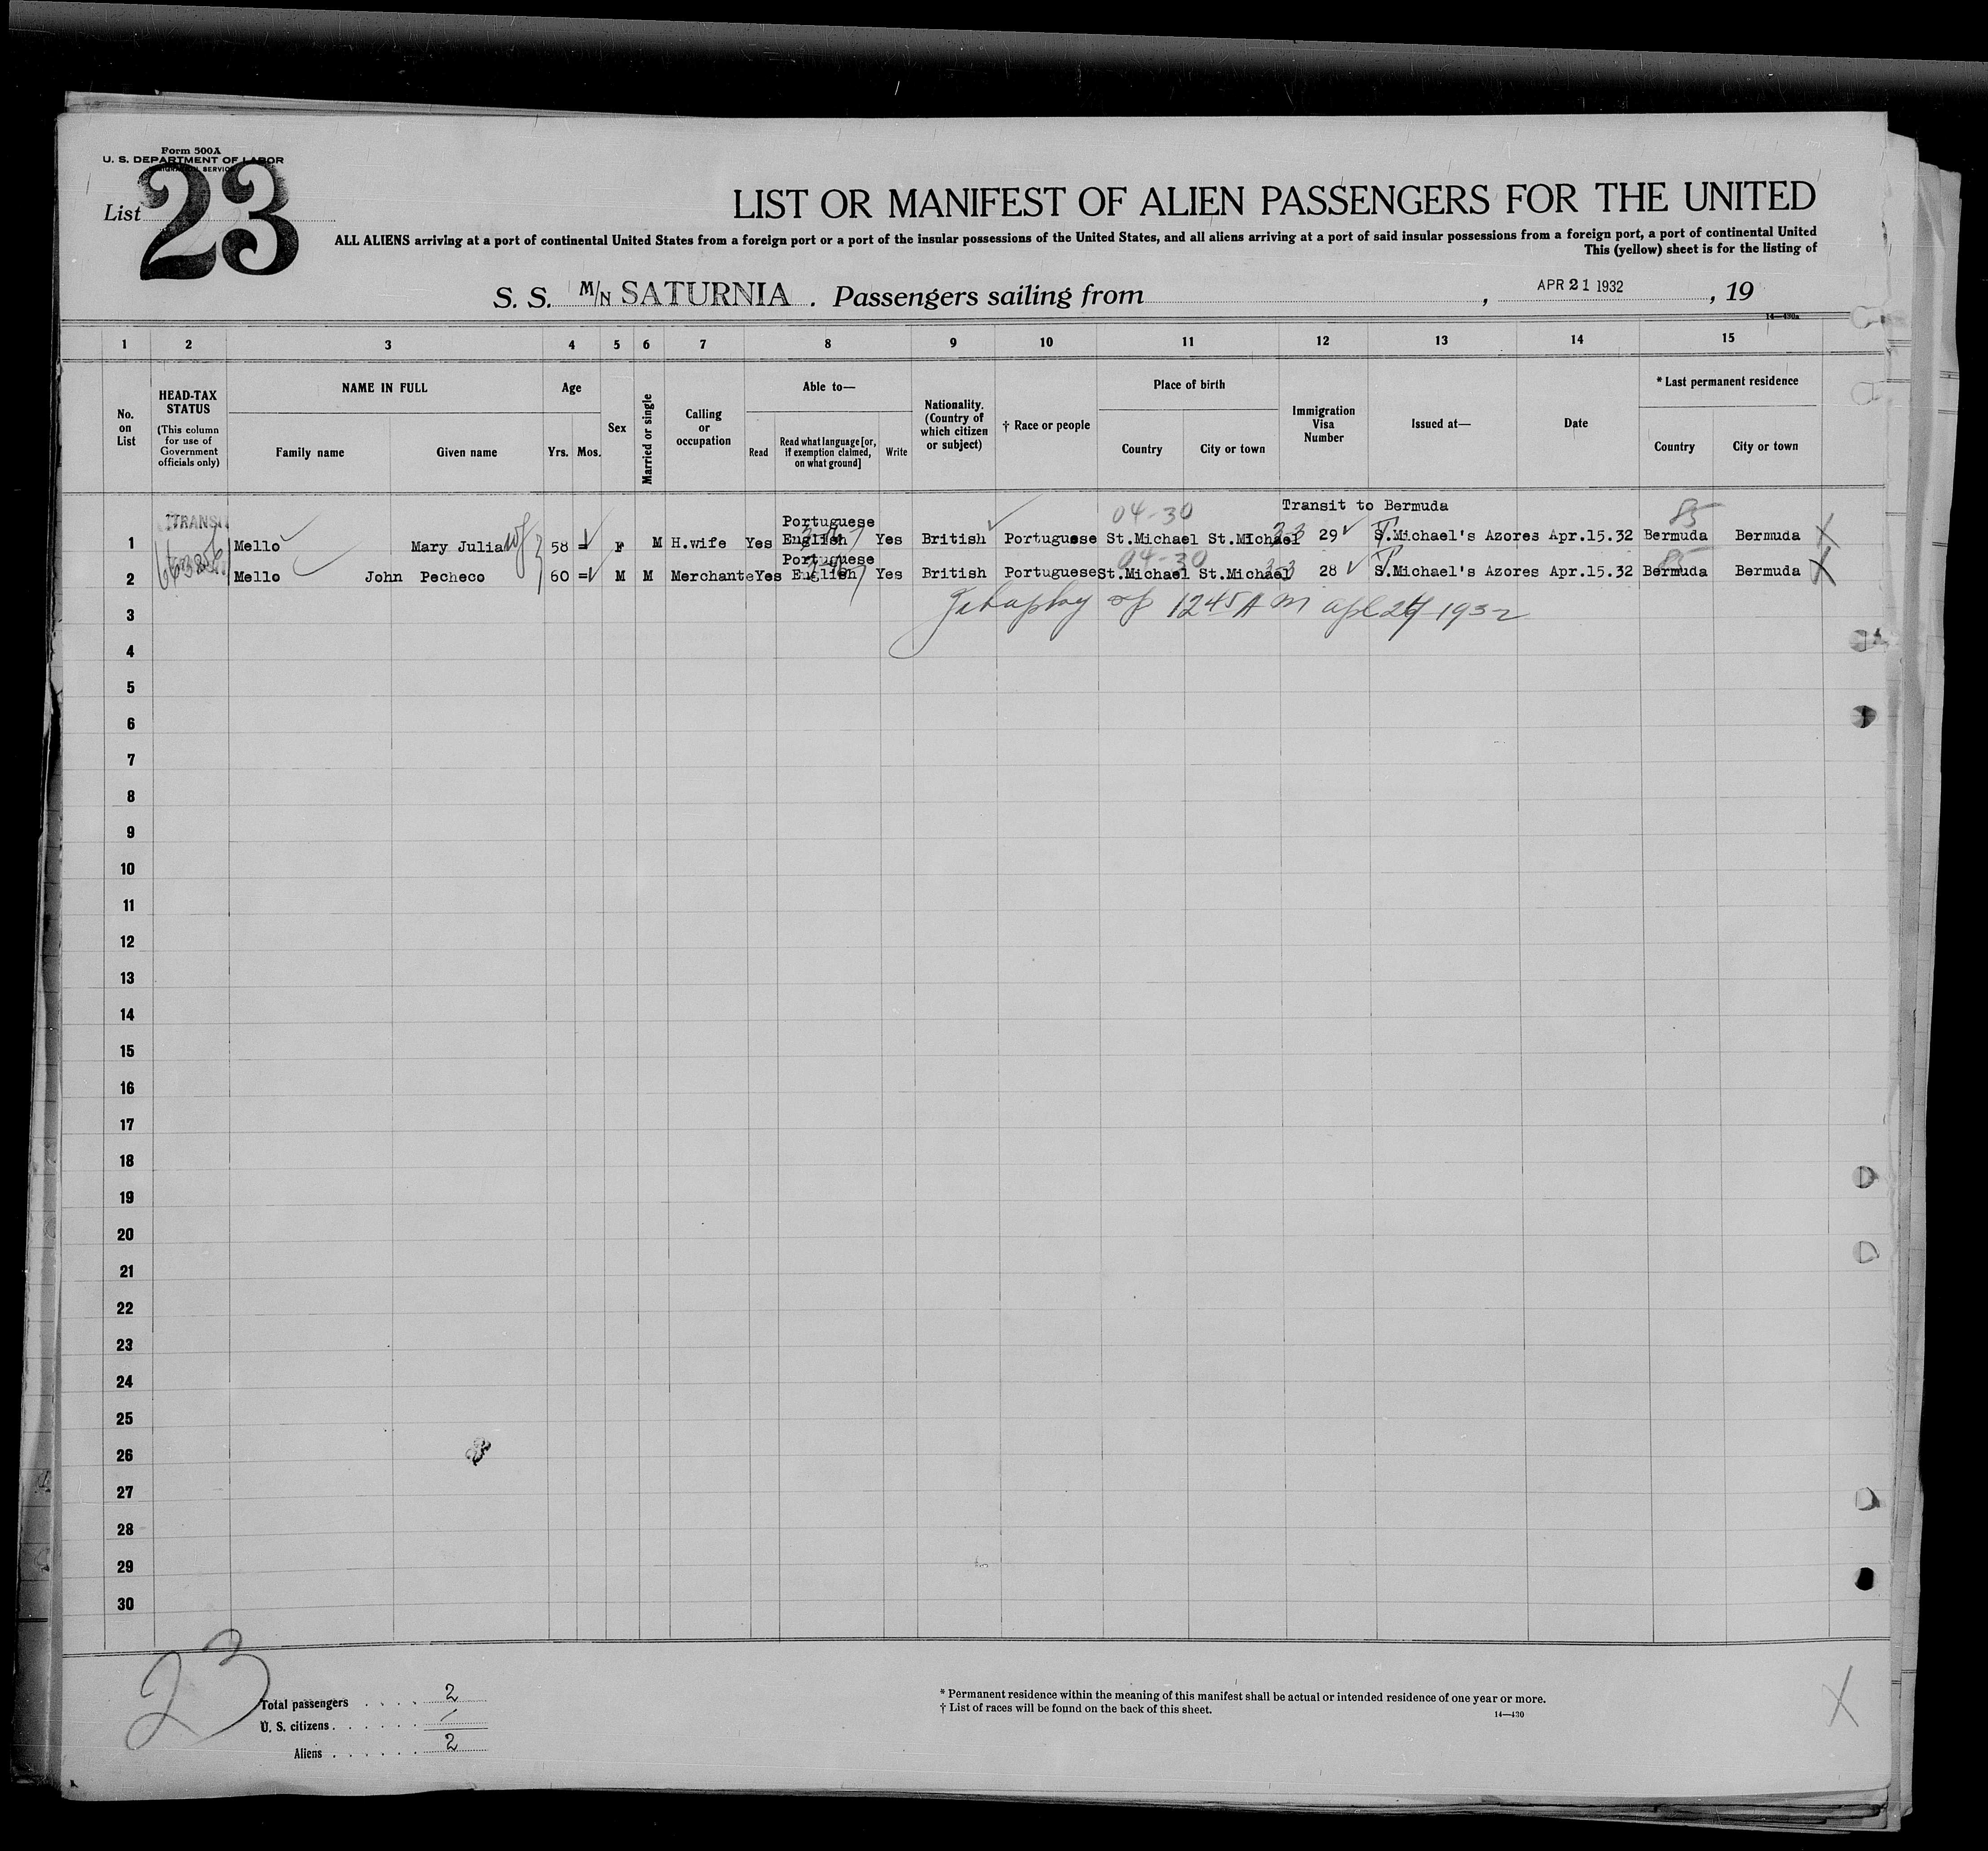 Form 500A
U. S. DEPARTMENT OF LABOR
IMMIGRATION SERVICE
List 23
LIST OR MANIFEST OF ALIEN PASSENGERS FOR THE UNITED
ALL ALIENS arriving at a port of continental United States from a foreign port or a port of the insular possessions of the United States, and all aliens arriving at a port of said insular possessions from a foreign port, a port of continental United
This (yellow) sheet is for the listing of
S. S. M/N SATURNIA . Passengers sailing from , APR 21 1932 , 19
14—430a
1 2 3 4 5 6 7 8 9 10 11 12 13 14 15
No. on List
HEAD-TAX STATUS
(This column for use of Government officials only)
NAME IN FULL
Family name
Given name
Age
Yrs.
Mos.
Sex
Married or single
Calling or occupation
Able to—
Read
Read what language [or, if exemption claimed, on what ground]
Write
Nationality. (Country of which citizen or subject)
† Race or people
Place of birth
Country
City or town
Immigration Visa Number
Issued at—
Date
* Last permanent residence
Country
City or town
TRANSIT
04-30 Transit to Bermuda 85
Portuguese
1 Mello Mary Julia wf 58 = F M H.wife Yes English Yes British Portuguese St.Michael St.MIchael 29 S.Michael's Azores Apr.15.32 Bermuda Bermuda X
Portuguese 04-30 85
2 Mello John Pecheco 60 = M M Merchante Yes English Yes British Portuguese St.Michael St.Michael 28 S.Michael's Azores Apr.15.32 Bermuda Bermuda X
3 1245 A M 1932
4
5
6
7
8
9
10
11
12
13
14
15
16
17
18
19
20
21
22
23
24
25
26
27
28
29
30
23
Total passengers . . . . 2
U. S. citizens . . . . . . /
Aliens . . . . . . 2
* Permanent residence within the meaning of this manifest shall be actual or intended residence of one year or more.
† List of races will be found on the back of this sheet.
14—430
X